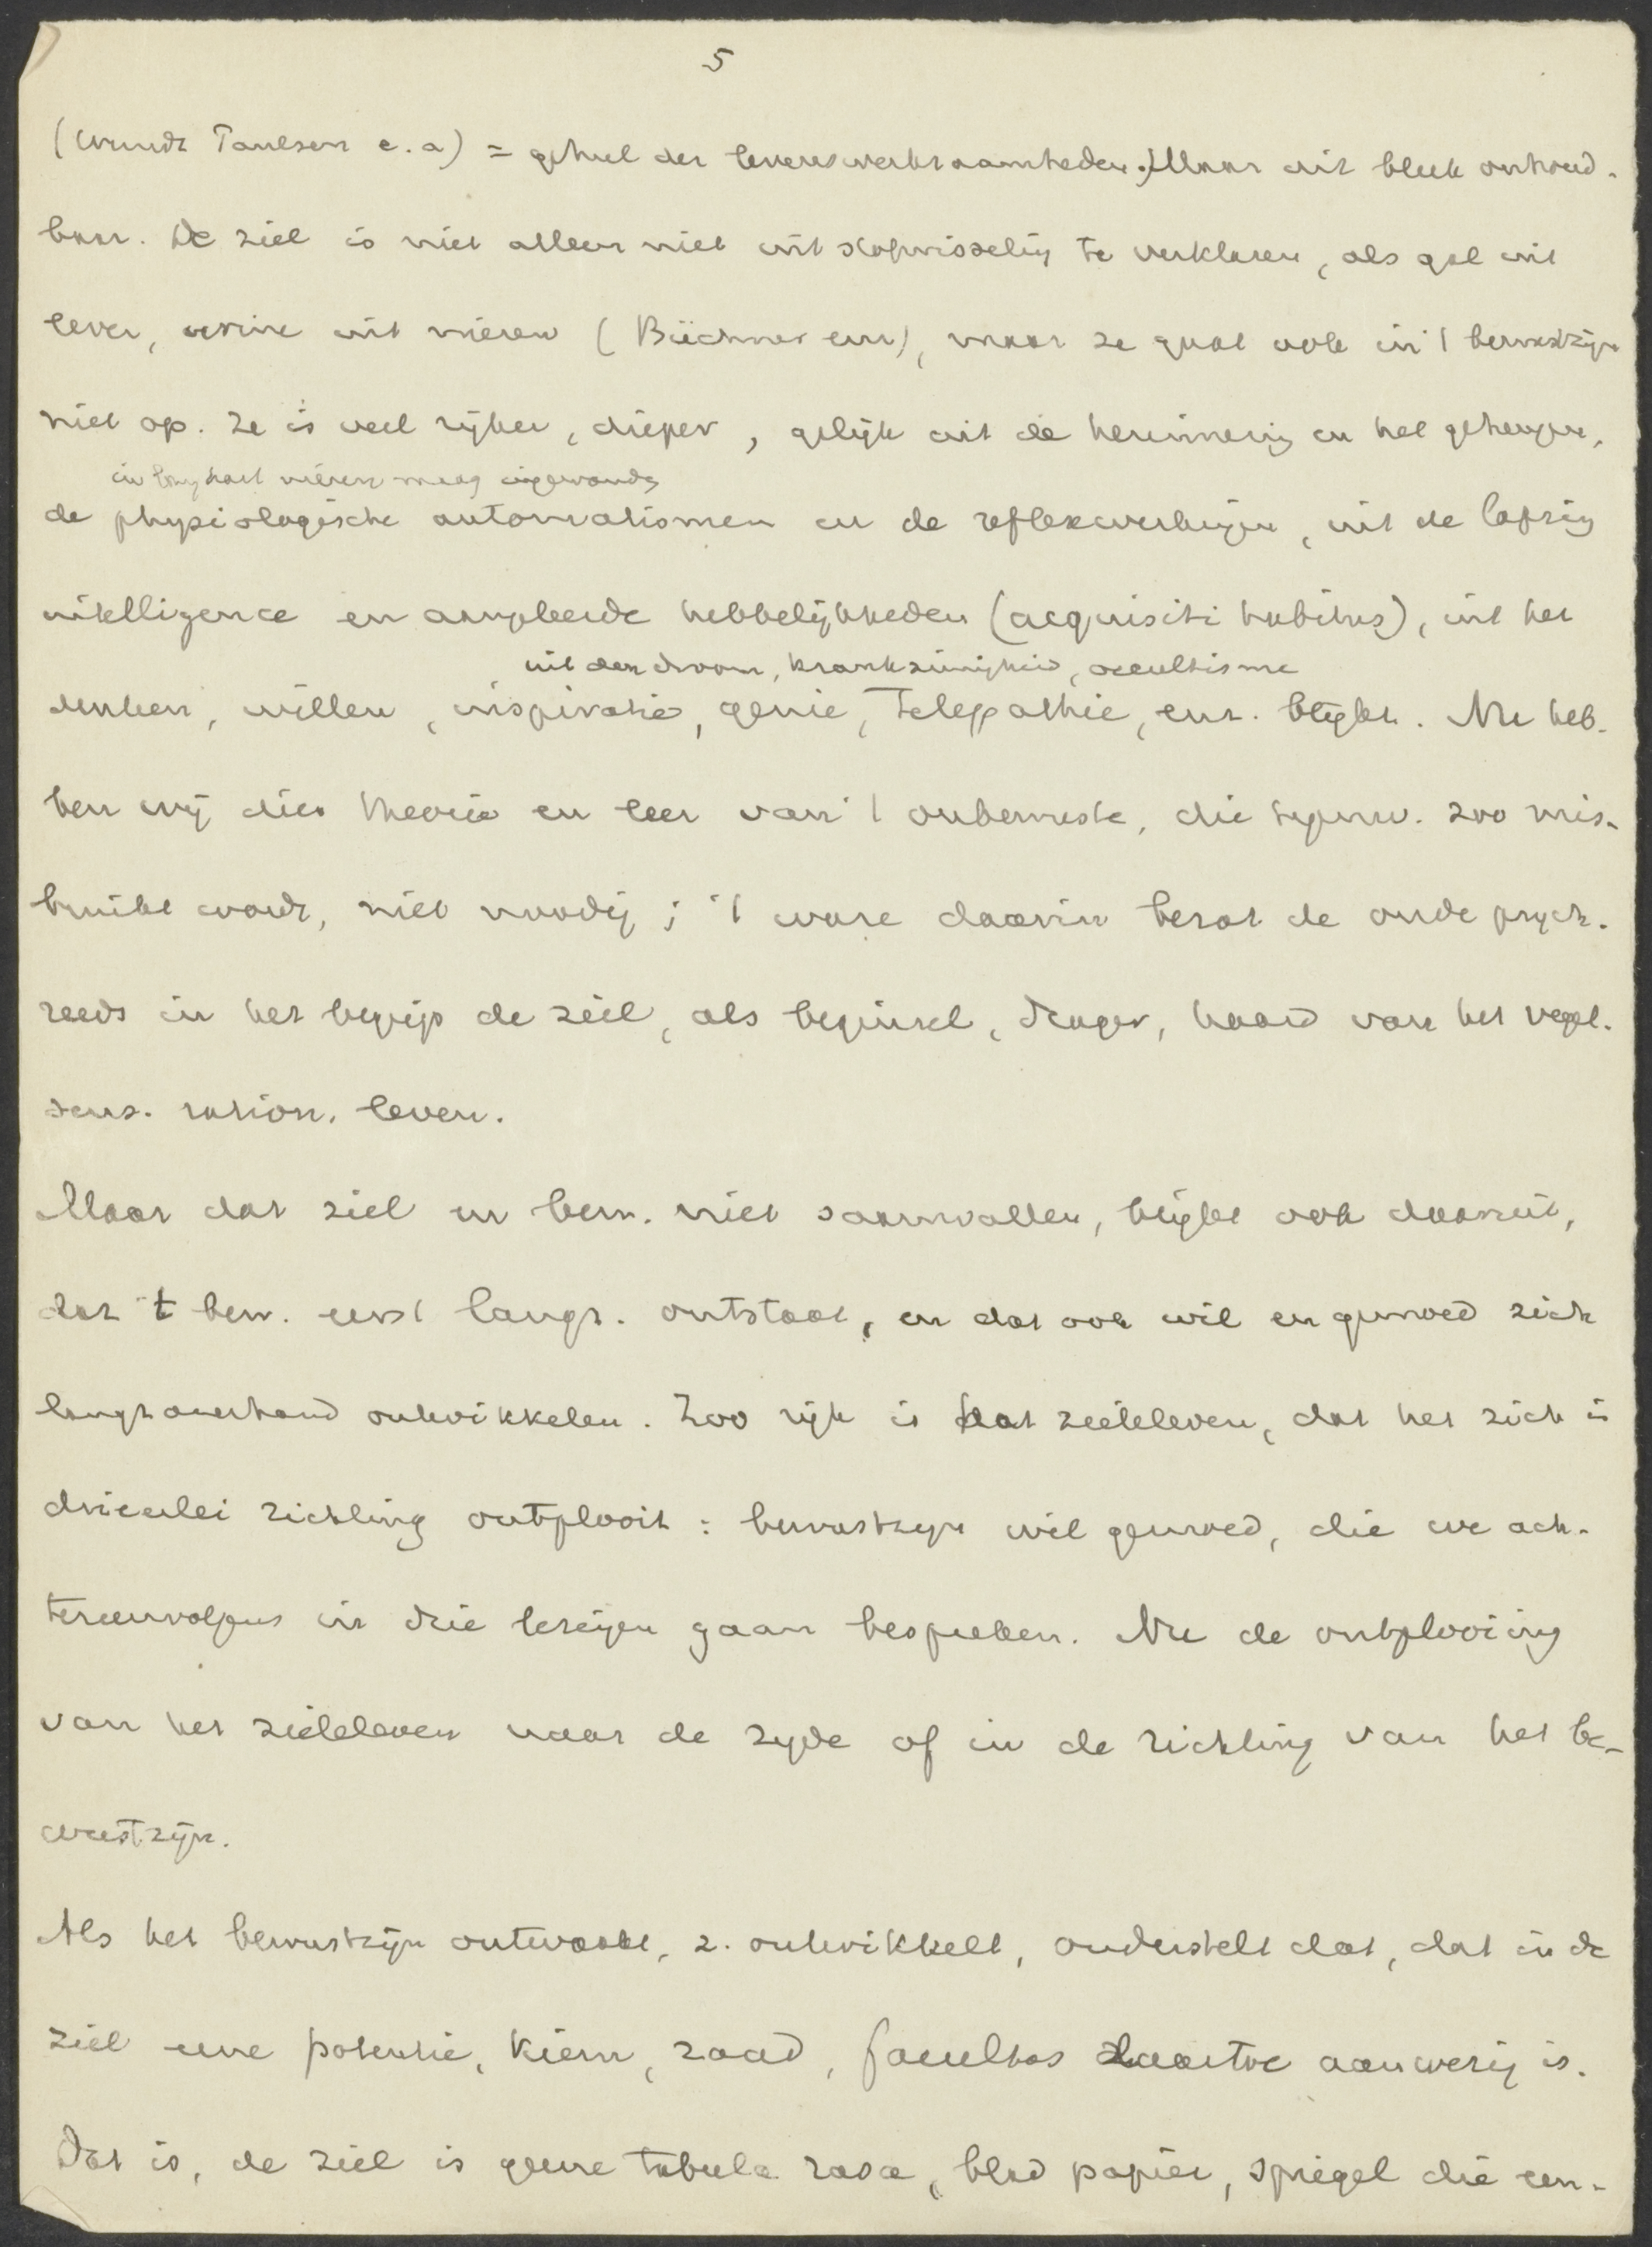 5
(Wundt Paulsen e.a) = geheel der levenswerkzaamheden.) Maar dit bleek onhoud-
baar. De ziel is niet alleen niet uit stofwisseling te verklaren, als gal uit
lever, urine uit nieren (Büchner enz), maar ze gaat ook in 't bewustzijn
niet op. Ze is veel rijker, dieper, gelijk uit de herinnering en het geheugen,
in long hart nieren maag ingewanden
de physiologische automatismen en de reflexwerkingen, uit de
intelligence en aangeleerde hebbelijkheden (acquisiti habitus), uit het
uit den droom, krankzinnigheid, occultisme
denken, willen, inspiratie, genie, telepathie, enz. blijkt. Nu heb-
ben wij die theorie en leer van 't onbewuste, die tegenw. zoo mis-
bruikt wordt, niet noodig; 't ware daarin bezat de oude psych.
reeds in het begrip de ziel, als beginsel, drager, haard van het veget.
sens. ration. leven.
Maar dat ziel en bew. niet saamvallen, blijkt ook daaruit,
dat 't bew. eerst langz. ontstaat, en dat ook wil en gemoed zich
langzamerhand ontwikkelen. Zoo rijk is dat zieleleven, dat het zich in
drieerlei richting ontplooit: bewustzijn wil gemoed, die we ach-
tereenvolgens in drie lezingen gaan bespreken. Nu de ontplooiing
van het zieleleven naar de zijde of in de richting van het be-
wustzijn.
Als het bewustzijn ontwaakt, z. ontwikkelt, onderstelt dat, dat in de
ziel eene potentie, kiem, zaad, facultas daartoe aanwezig is.
Dat is, de ziel is geene tabula rasa, blad papier, spiegel die een-